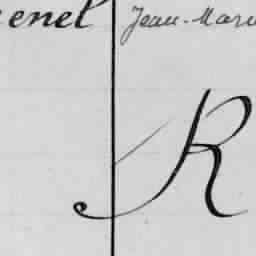 enel Jean-Mari
R